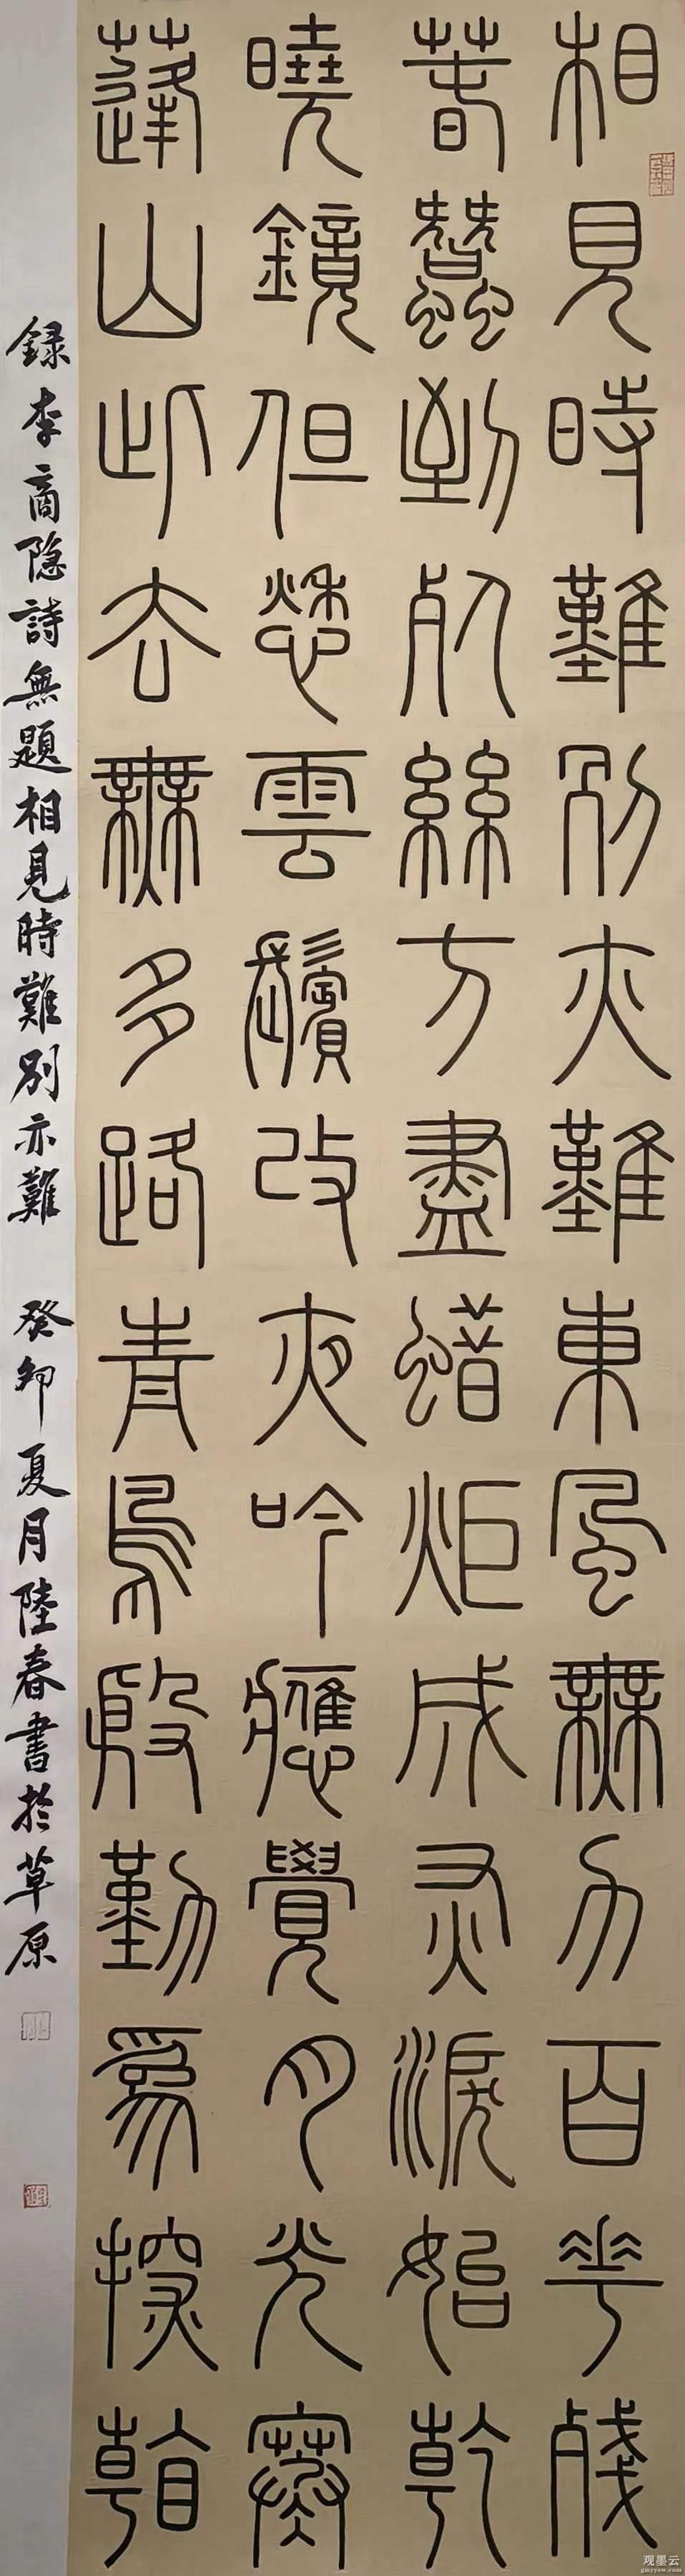 相見時難別亦難東風無力百花殘
春蠶到死絲方盡蜡炬成灰淚始乾
曉鏡但愁雲鬢改夜吟應覺月光寒
蓬山此去無多路青鳥殷勤為探看
録李商隐詩無題相見時難別亦難 癸卯夏月陸春書於草原
观墨云
gmyyew.com